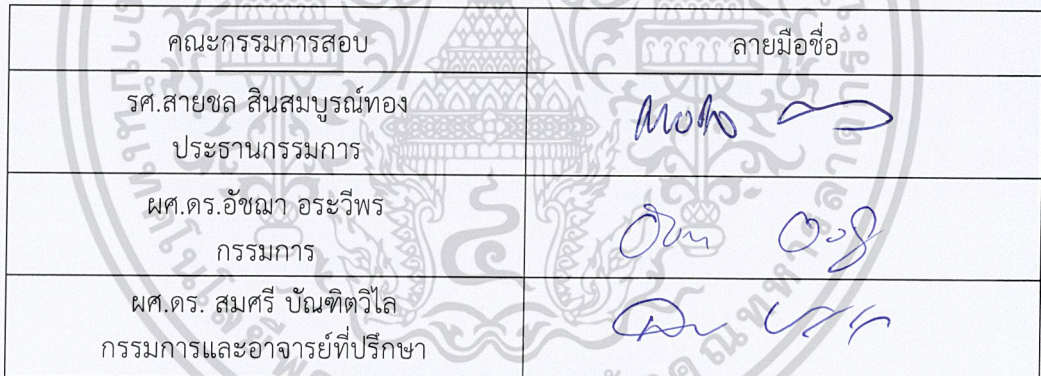 คณะกรรมการสอบ ลายมือชื่อ
รศ.สายชล สินสมบูรณ์ทอง
ประธานกรรมการ
ผศ.ดร.อัชฌา อระวีพร
กรรมการ
ผศ.ดร. สมศรี บัณฑิตวิไล
กรรมการและอาจารย์ที่ปรึกษา